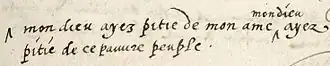 mondieu
^ mon dieu ayez pitie de mon ame ^ ayez
pitie de ce pauure peuple .